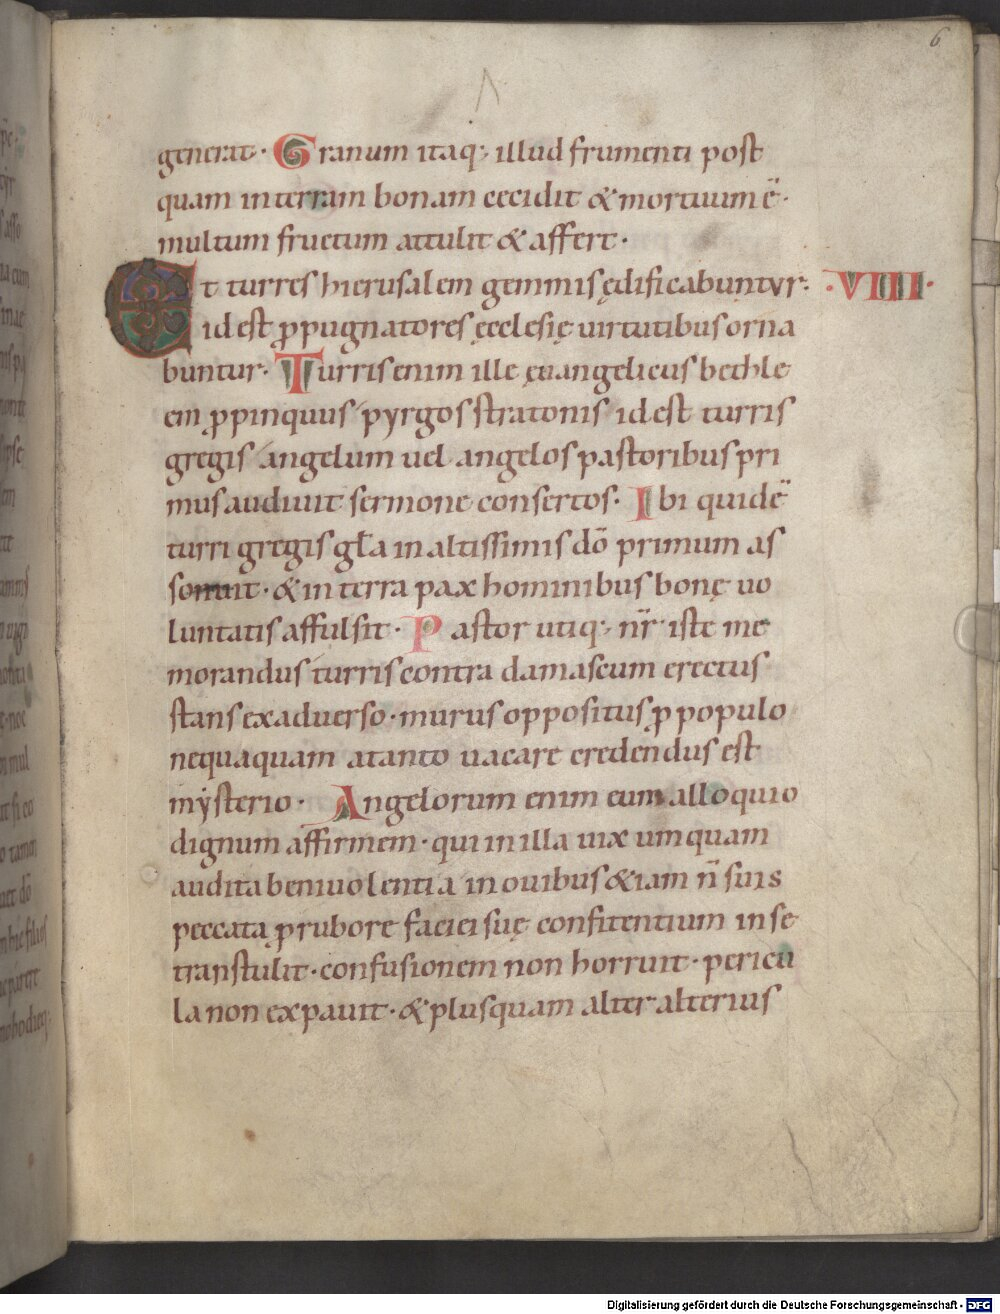 6
generat · Granum itaq; illud frumenti post
quam in terram bonam cecidit & mortuum ē ·
multum fructum attulit & affert ·
Et turres hierusalem gemmis ędificabuntur : · VIII ·
id est ꝓpugnatores ęcclesię uirtutibus orna
buntur · Turris enim ille ęuangelicus bethle
em ꝓpinquus pyrgos stratonis id est turris
gregis angelum uel angelos pastoribus pri
mus audiuit sermone consertos · Ibi quidē
turri gregis gła in altissimis dō primum as
sonuit · & in terra pax hominibus bonę uo
luntatis affulsit · Pastor utiq; nr̄ iste me
morandus turris contra damascum erectus
stans exaduerso · murus oppositus ꝓ populo
nequaquam a tanto uacare credendus est
mysterio · Angelorum enim eum alloquio
dignum affirmem · qui in illa uix umquam
audita beniuolentia in ouibus & iam n̄ suis
peccata p̱ rubore faciei suę confitentium in se
transtulit · confusionem non horruit · pericu
la non expauit · & plusquam alter alterius
Digitalisierung gefördert durch die Deutsche Forschungsgemeinschaft - DFG